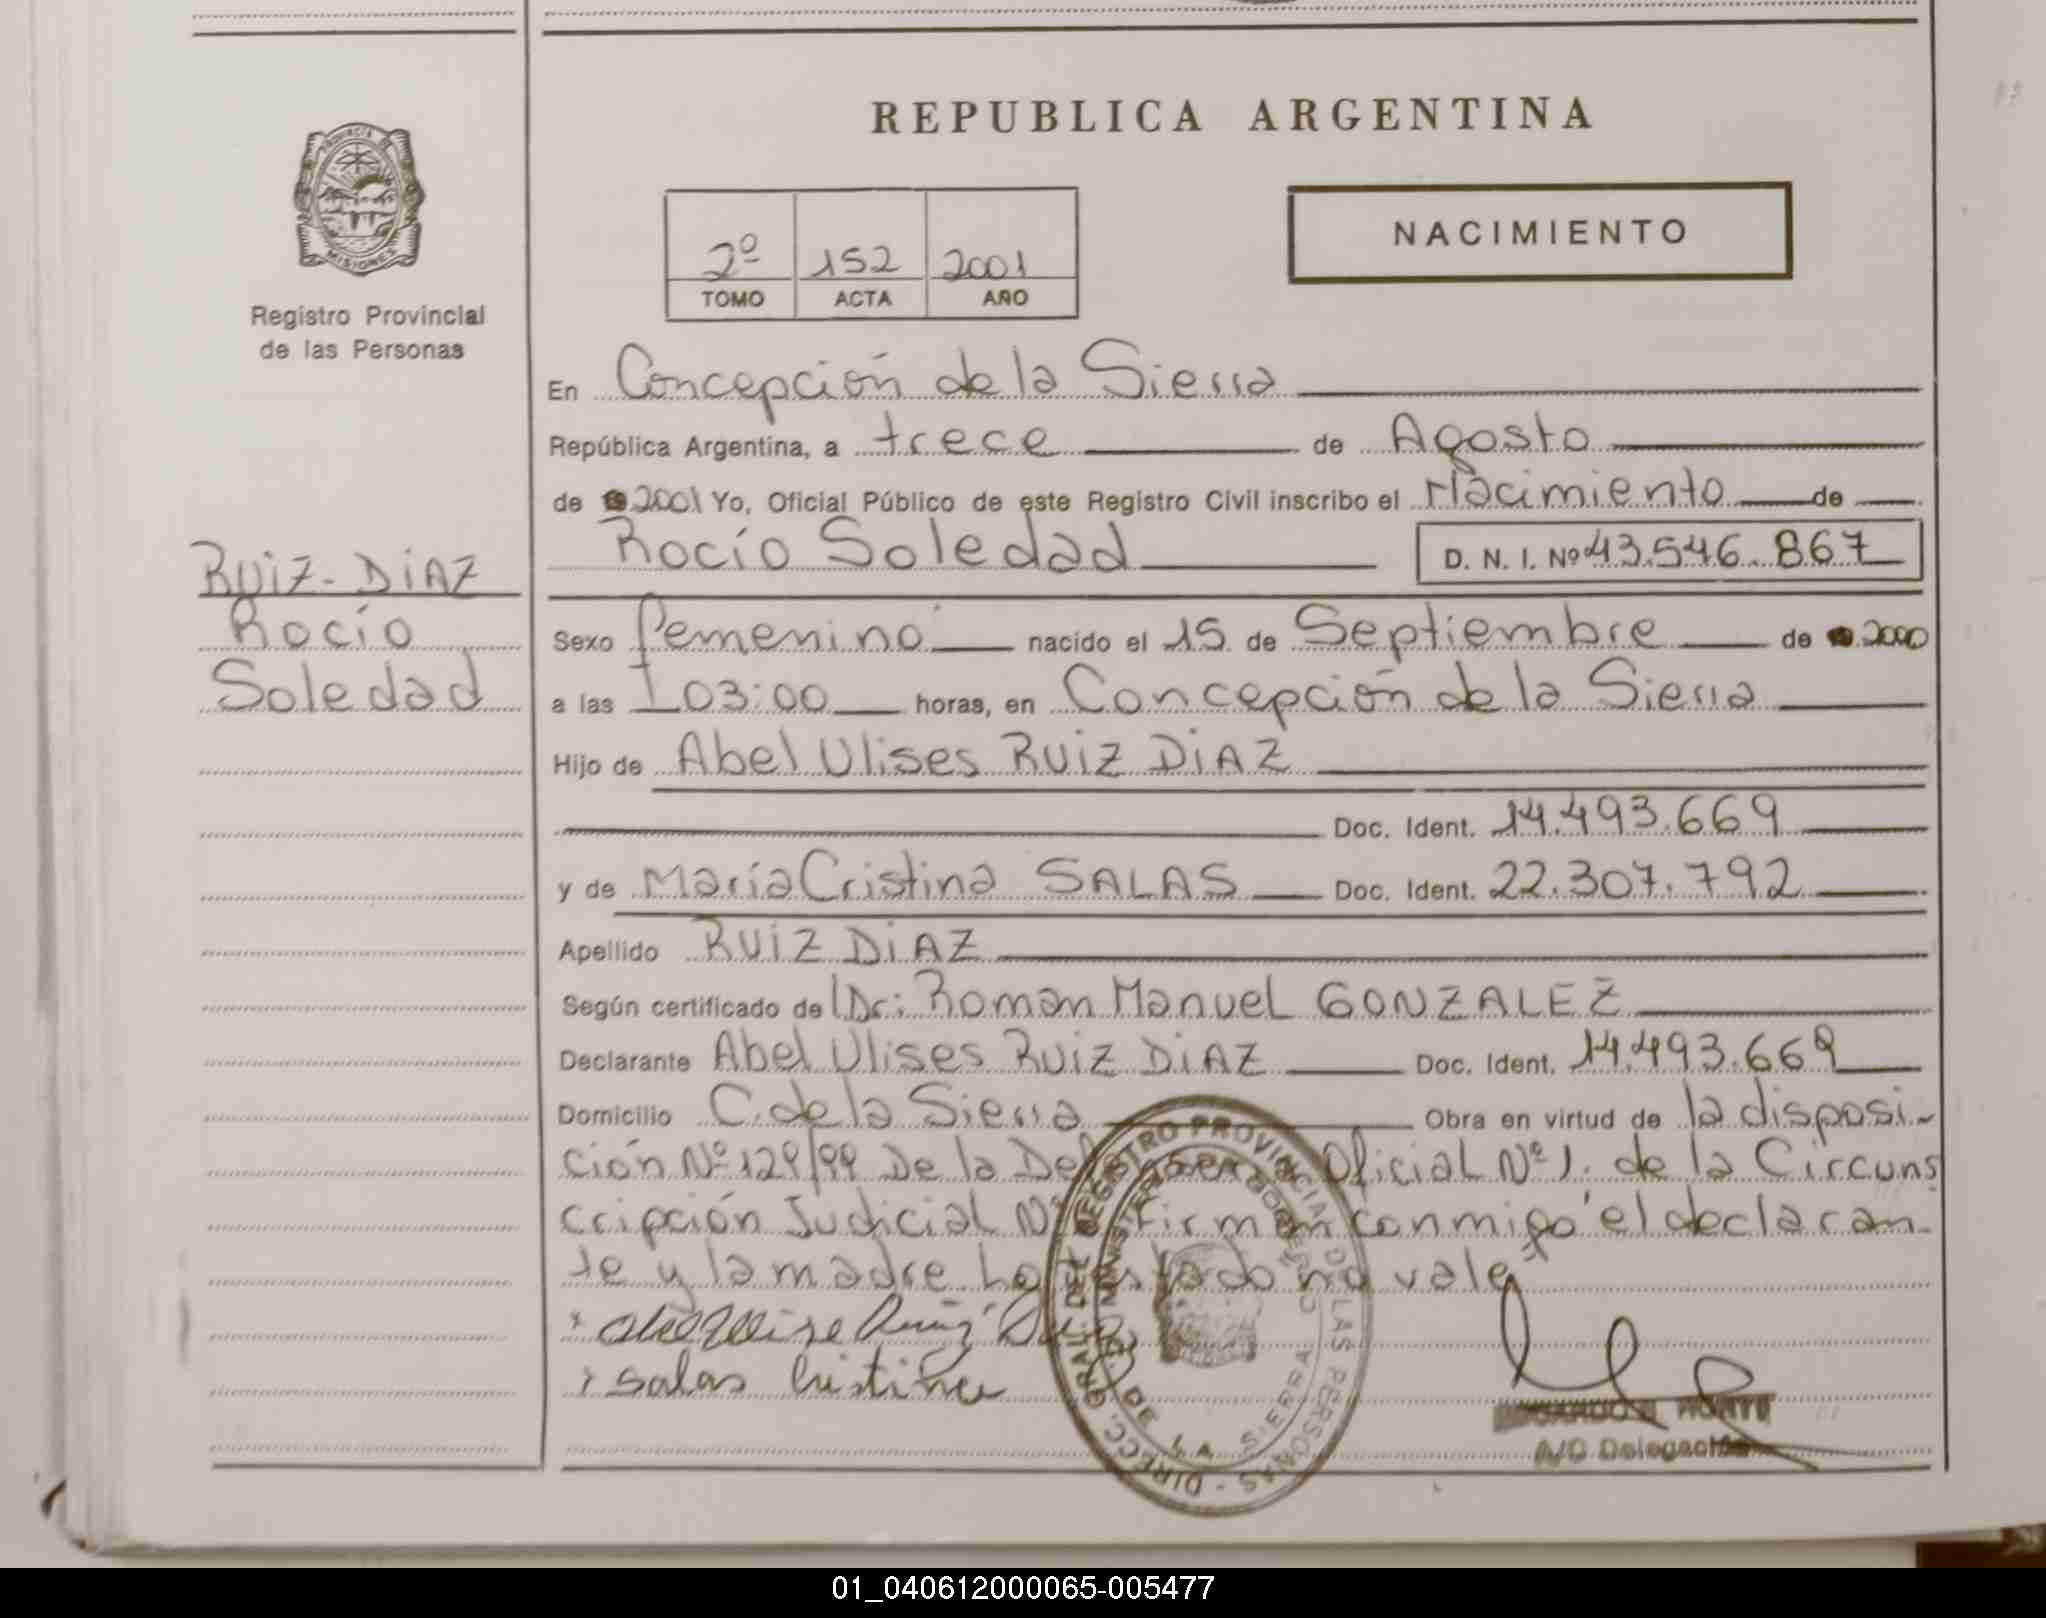 REPUBLICA ARGENTINA
PROVINCIA DE
MISIONES
Registro Provincial
de las Personas
2º 152 2001
TOMO ACTA AÑO
NACIMIENTO
En Concepción de la Sierra
República Argentina, a trece de Agosto
de 2001 Yo, Oficial Público de este Registro Civil inscribo el Nacimiento de
Rocío Soledad D. N. I. Nº 43.546.867
RUIZ-DIAZ
Rocío
Soledad
Sexo femenino nacido el 15 de Septiembre de 2000
a las 03:00 horas, en Concepción de la Sierra
Hijo de Abel Ulises RUIZ DIAZ
Doc. Ident. 14.493.669
y de María Cristina SALAS Doc. Ident. 22.307.792
Apellido RUIZ DIAZ
Según certificado de Dr: Roman Manuel GONZALEZ
Declarante Abel Ulises RUIZ DIAZ Doc. Ident. 14.493.669
Domicilio C. de la Sierra Obra en virtud de la disposi-
ción Nº 129/99 De la Oficial Nº 1. de la Circuns
cripción Judicial Firman conmigo el declaran-
te y la madre. Lo testado no vale
Salas Cristina
DIRECC. GRAL. DEL REGISTRO PROVINCIAL DE LAS PERSONAS
MINISTERIO DE GOBIERNO
DE LA SIERRA
A/C Delegación
01_040612000065-005477